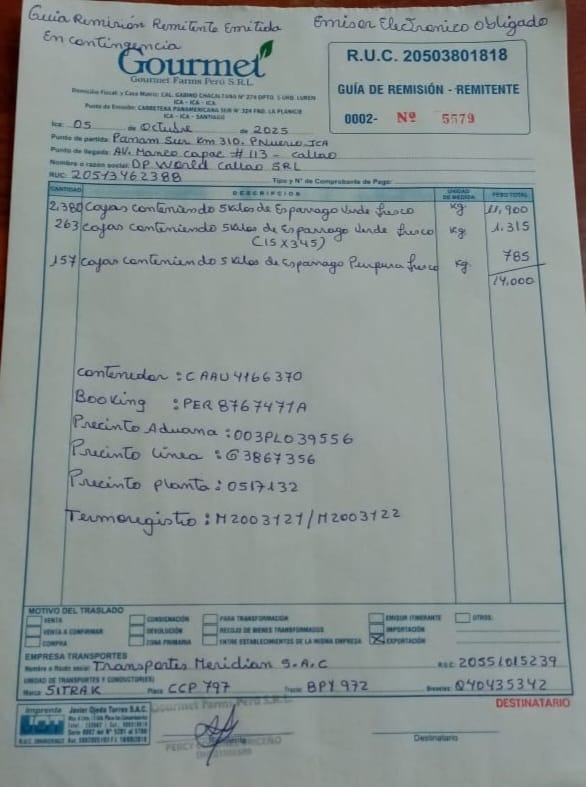 Guia Remisión Remitente Emitida
En contingencia
Emisor Electronico obligado
Gourmet
Gourmet Farms Perú S.R.L.
Domicilio Fiscal y Casa Matriz: CAL. GABINO CHACALTANA Nº 274 DPTO. 5 URB. LUREN
ICA - ICA - ICA
Punto de Emisión: CARRETERA PANAMERICANA SUR Nº 324 FND. LA PLANICIE
ICA - ICA - SANTIAGO
R.U.C. 20503801818
GUÍA DE REMISIÓN - REMITENTE
0002- Nº 5579
Ica: 05 de Octubre de 2025
Punto de partida: Panam Sur Km 310. P.Nuevo. ICA
Punto de llegada: AV. Manco capac # 113 - callao
Nombre o razón social: DP World Callao SRL
RUC: 20513462388 Tipo y N° de Comprobante de Pago:
CANTIDAD DESCRIPCION UNIDAD DE MEDIDA PESO TOTAL
2,380 Cajas conteniendo 5 kilos de Esparrago Verde fresco kg. 11,900
263 Cajas conteniendo 5 kilos de Esparrago Verde fresco kg. 1.315
(15 X 345)
157 Cajas conteniendo 5 kilos de Esparrago Purpura fresco kg. 785
14,000
contenedor : CAAU 4166370
Booking : PER 8767471A
Precinto Aduana : 003PL039556
Precinto Linea : G3867356
Precinto planta : 0517132
Termoregistro : M2003121/M2003122
MOTIVO DEL TRASLADO
VENTA CONSIGNACIÓN PARA TRANSFORMACIÓN EMISOR ITINERANTE OTROS:
VENTA A CONFIRMAR DEVOLUCIÓN RECOJO DE BIENES TRANSFORMADOS IMPORTACIÓN
COMPRA ZONA PRIMARIA ENTRE ESTABLECIMIENTOS DE LA MISMA EMPRESA EXPORTACIÓN
EMPRESA TRANSPORTES
Nombre o Razón social: Transportes Meridian S.A.C RUC: 20551015239
UNIDAD DE TRANSPORTES Y CONDUCTOR(ES)
Marca SITRAK Placa CCP 797 Tracto BPY 972 Brevetes Q40435342
DESTINATARIO
Imprenta Javier Ojeda Torres S.A.C.
Gourmet Farms Perú S.R.L.
Destinatario